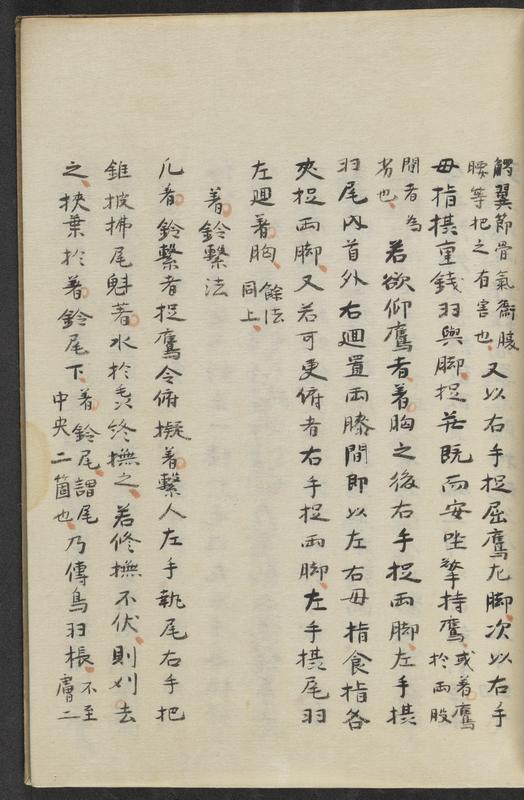 觸翼節骨氣衝腋
腰等把之有害也又以右手捉屈鷹左脚次以右手
母指横重錢羽與脚捉荘既而安坐擎持鷹或着鷹於両股
間者為劣也 若欲仰鷹者着胸之後右手捉両脚左手横
羽尾内首外右廻置両膝間即以左右母指食指各
夾捉両脚又若可更俯者右手捉両脚左手横尾羽
左廻着胸餘法同上
着鈴繋法
凡着鈴繋者捉鷹令俯擬着繋人左手執尾右手把
錐披拂尾魁著水於毛終撫之若修撫不伏則刈去
之挟葉於着鈴尾下着鈴尾謂尾中央二箇也乃傳鳥羽根不至膚二